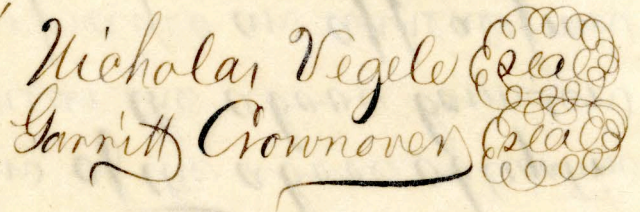 Nicholas Vegele seal
Garritt Crownover seal